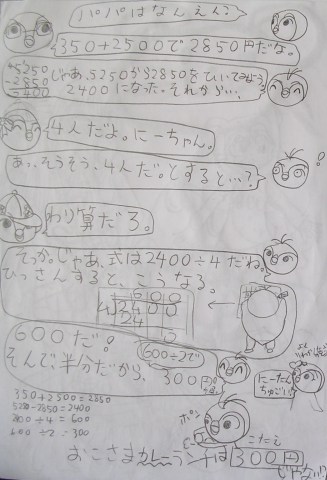 パパはなんえん?
350+2500で2850円だな。
5250
-2850
2400
じゃあ、5250から2850をひいてみよう
2400になった。それから…、
4人だよ。にーちゃん。
あっ。そうそう、4人だ。とすると…?
わり算だろ。
そっか。じゃあ、式は2400÷4だね。
ひっさんすると、こうなる。
600
4)2400
24
0
600だ!
600÷2で
そんで、半分だから、
300円。
にーたん
ちゅごい!
350+2500=2850
5250-2850=2400
2400÷4=600
600÷2=300
ポン
こたえ
おこさまカレーランチは300円
じゃない!?